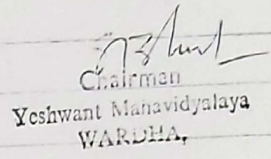 Chairman
Yeshwant Mahavidyalaya
WARDHA,